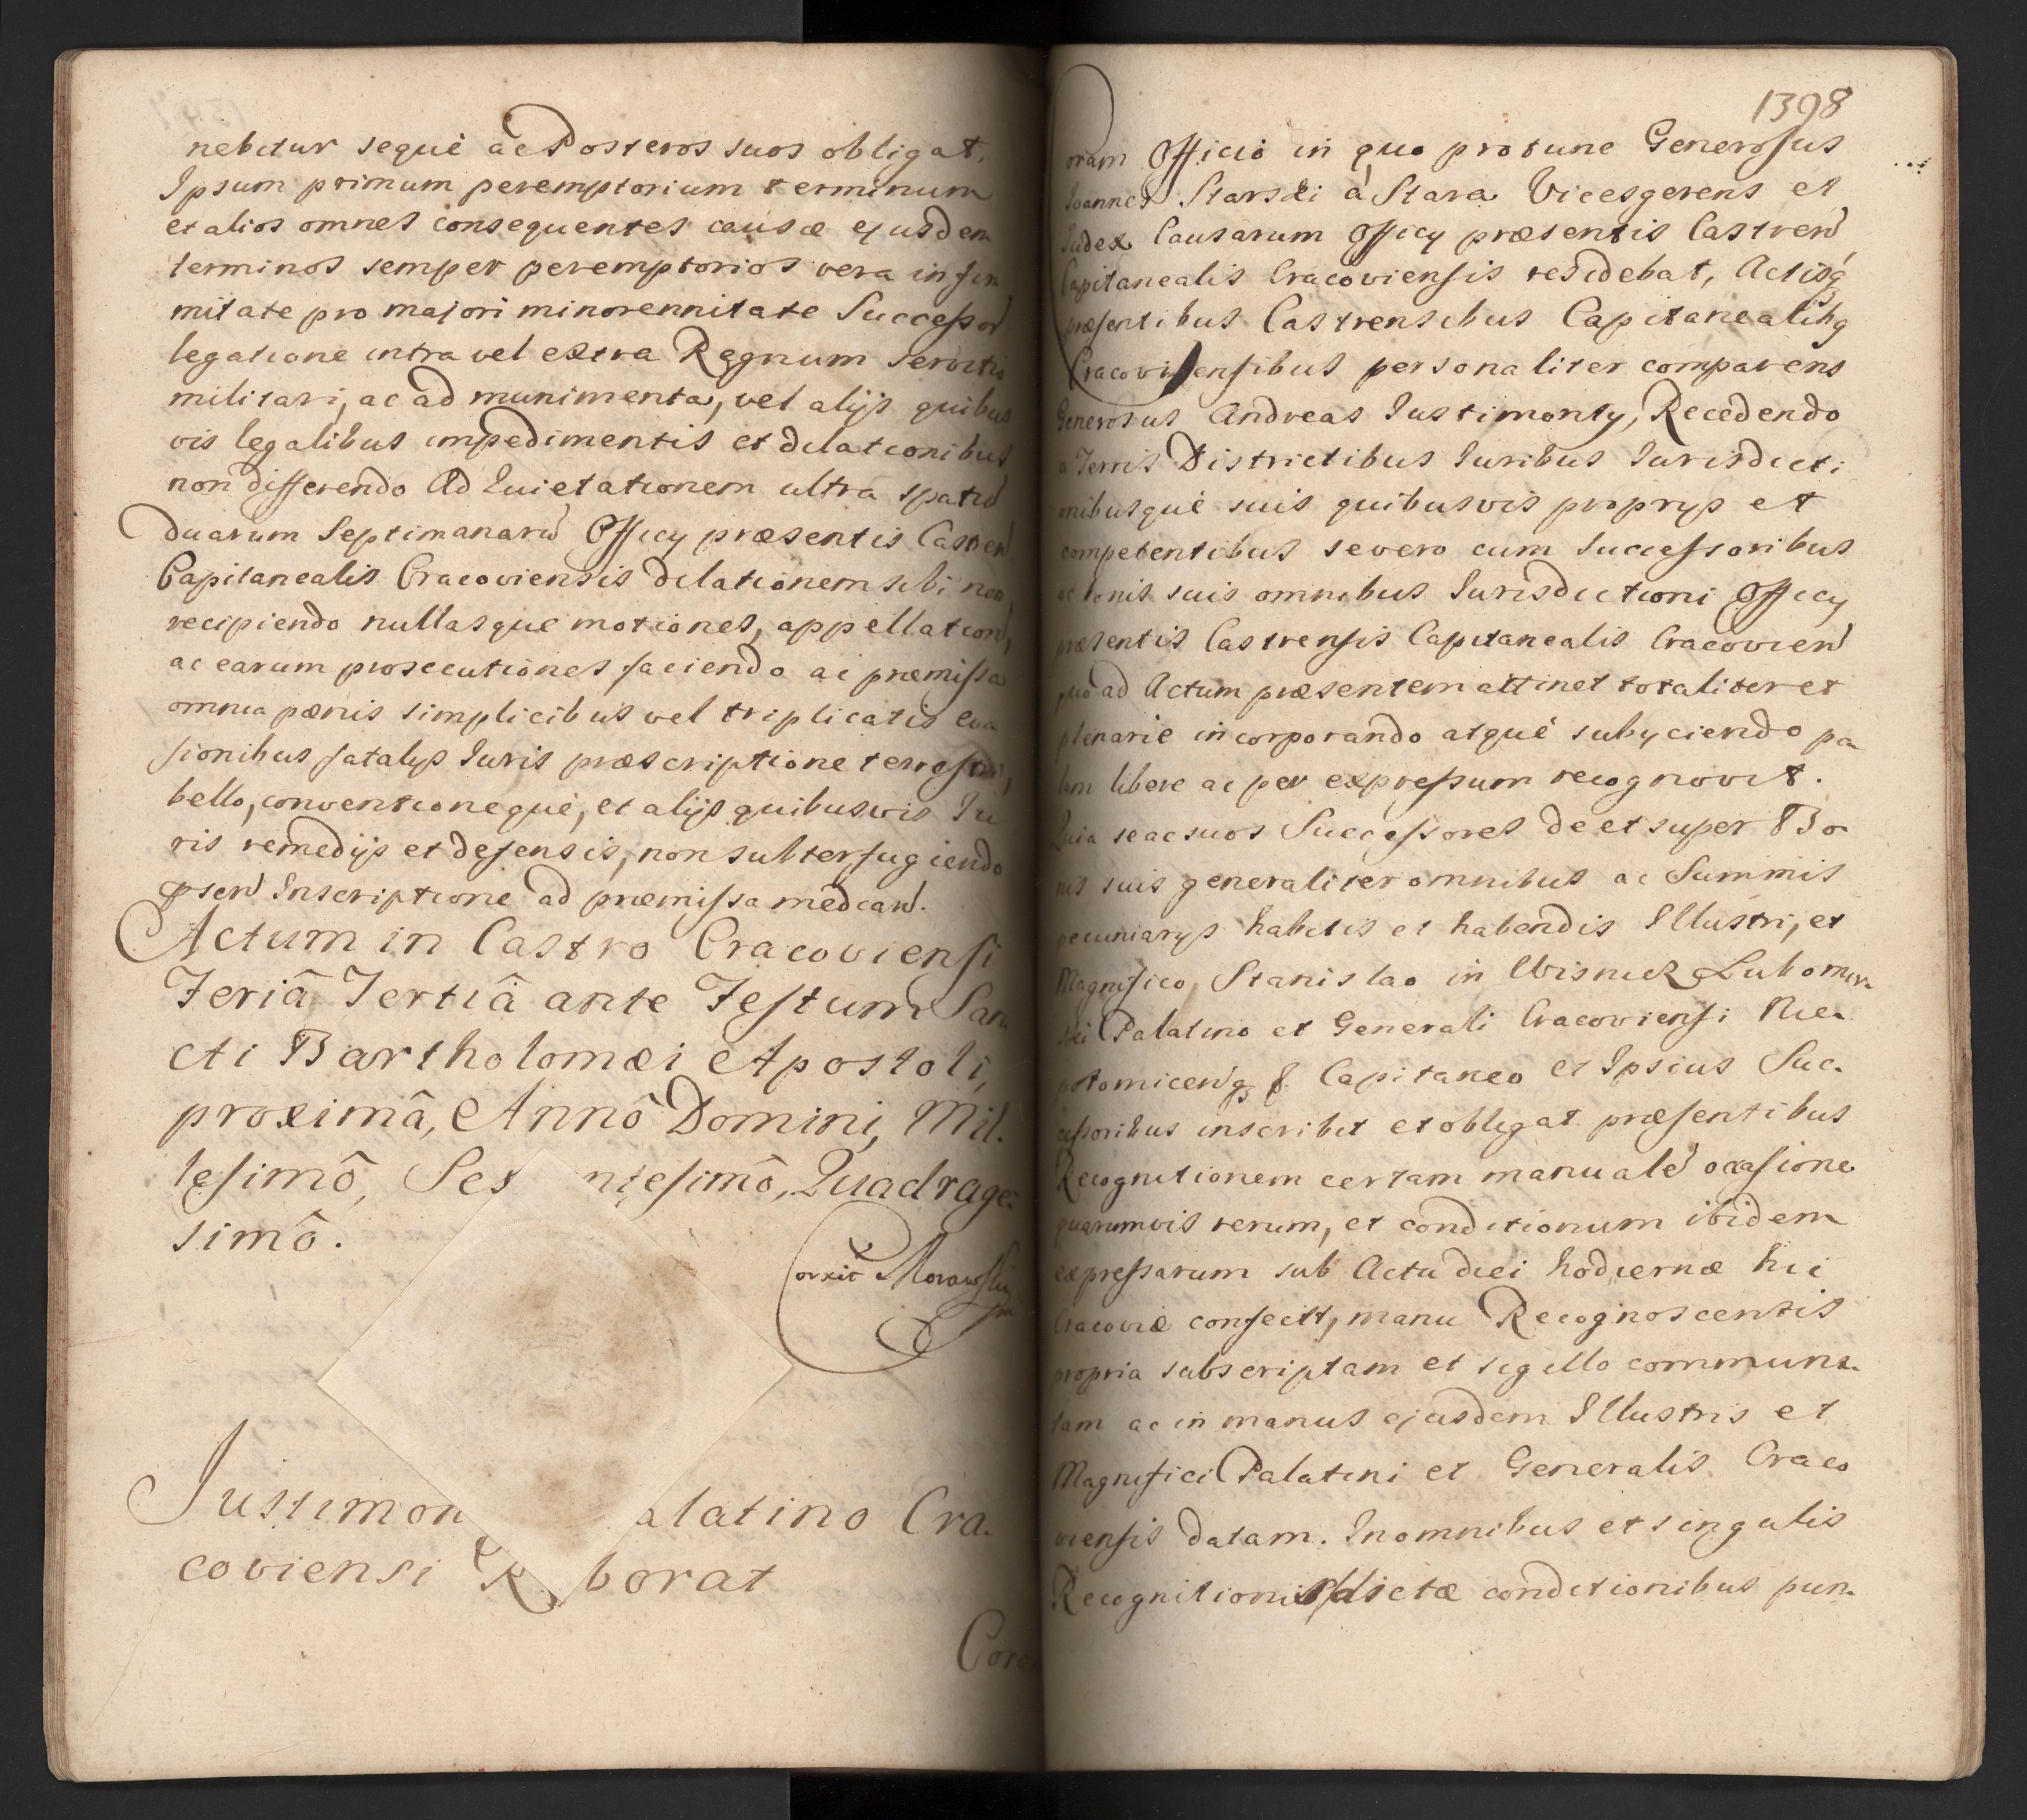 nebitur seque ac Posteros suos obligat,
Ipsum primum peremptorium terminum
et alios omnes consequentes causæ ejusdem
terminos semper peremptorios vera infir
mitate pro majori minorennitate Successor
legatione intra vel extra Regnum servitio
militari, ac ad munimenta, vel alijs quibus
vis legalibus impedimentis et dilationibus
non differendo Ad Quietationem ultra spatiũ
duarum Septimanarũ Officy præsentis Castren
Capitanealis Cracoviensis dilationem sibi non
recipiendo nullasque motiones, appellation,
ac earum prosecutiones faciendo ac præmissa
omnia pænis simplicibus vel triplicatis eva
sionibus fatalijs Iuris præscriptione terrestri,
bello, conventioneque, et alijs quibusvis Iu
ris remedijs et defensis, non subterfugiendo
psen Inscriptione ad præmissa median.
Actum in Castro Cracoviensi
Feriâ Tertiâ ante Festum San
cti Bartholomæi Apostoli,
proximâ, Annô Domini, Mil.
lesimô, Sex ntesimô, Quadrage.
simô.
Corxit Morawski
Justimon alatino Cra.
coviensi R borat
Coram
1398
Coram Officio in quo protunc Generosus
Ioannes Starski à Stara Vicesgerens et
Iudex Causarum Officy præsentis Castren
Capitanealis Cracoviensis residebat, Actisq
præsentibus Castrensibus Capitanealibq
Cracoviensibus personaliter comparens
Generosus Andreas Iustimonty, Recedendo
a Terris Districtibus Iuribus Iurisdicti
onibusque suis quibusvis proprys et
competentibus severo cum Successoribus
ac bonis suis omnibus Iurisdictioni Officy
præsentis Castrensis Capitanealis Cracovien
quo ad Actum præsentem attinet totaliter et
plenarie incorporando atque subyciendo pa
lam libere ac per expressum recognovit.
Quia se ac suos Successores de et super Bo
nis suis generaliter omnibus ac Summis
pecuniarys habitis et habendis Illustri, et
Magnifico Stanislao in Wisnicz Lubomir.
ski Palatino et Generali Cracoviensi Nie.
potomicenq &. Capitaneo et Ipsius Suc.
cessoribus inscribit et obligat præsentibus
Recognitionem certam manuale occasione
quarumvis rerum, et conditionum ibidem
expressarum sub Actu diei hodiernæ hic
Cracoviæ confecit, manu Recognoscentis
propria subscriptam et sigillo communi.
tam ac in manus ejusdem Illustris et
Magnifici Palatini et Generalis Craco
viensis datam. In omnibus et singulis
Recognitionis dictæ conditionibus pun.